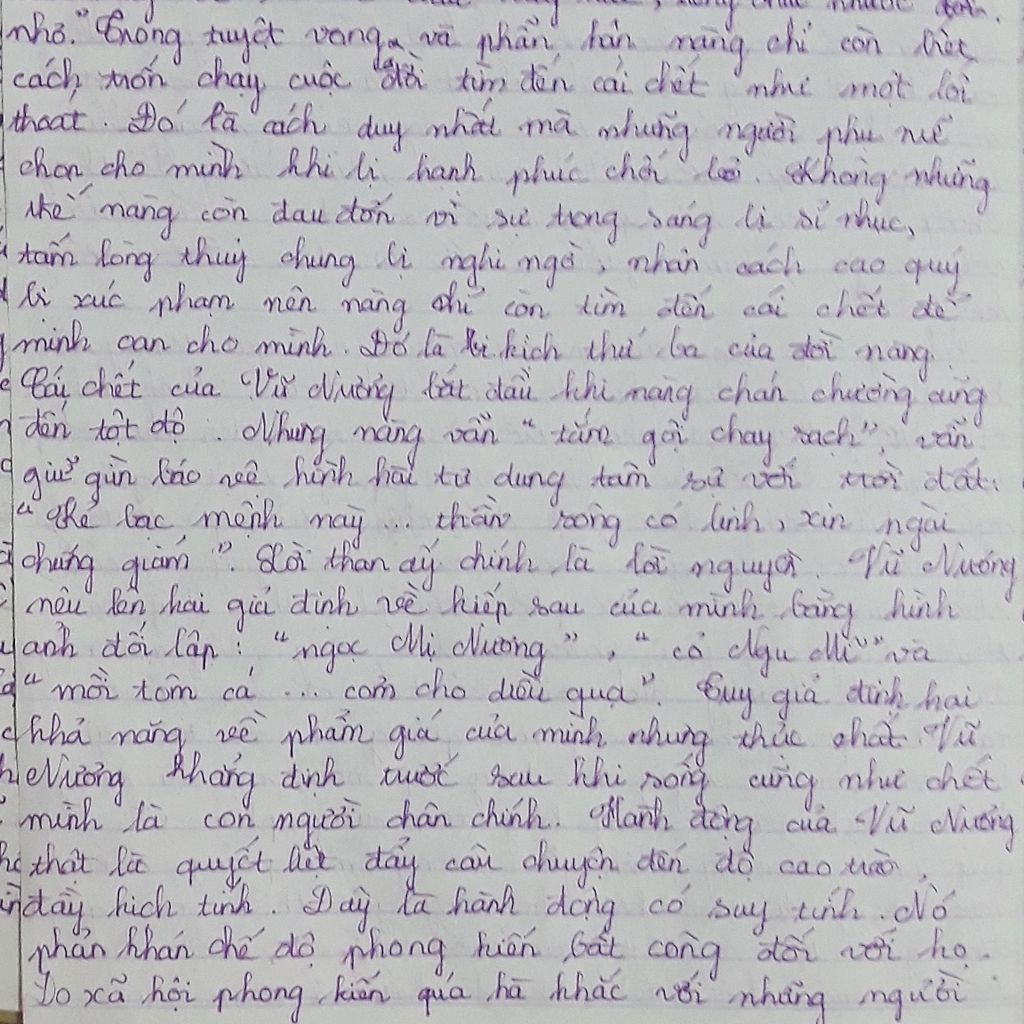 nhỏ. "Trong tuyệt vọng và phẫn hận nàng chỉ còn biết
cách trốn chạy cuộc đời tìm đến cái chết như một lối
thoát. Đó là cách duy nhất mà những người phụ nữ
chọn cho mình khi bị hạnh phúc chối bỏ. Không những
thế nàng còn đau đớn vì sự trong sáng bị sỉ nhục,
tấm lòng thuỷ chung bị nghi ngờ, nhân cách cao quý
bị xúc phạm nên nàng chỉ còn tìm đến cái chết để
minh oan cho mình. Đó là bi kịch thứ ba của đời nàng.
Cái chết của Vũ Nương bắt đầu khi nàng chán chường cùng
đến tột độ. Nhưng nàng vẫn "tắm gội chay sạch", vẫn
giữ gìn báo về hình hài tư dung tâm sự với trời đất.
"Kẻ bạc mệnh này... thần sông có linh, xin ngài
chứng giám". Lời than ấy chính là lời nguyền. Vũ Nương
nêu lên hai giả định về kiếp sau của mình bằng hình
ảnh đối lập: "ngọc Mị Nương", "cỏ Ngu Mĩ" và
"mồi tôm cá ... cơm cho diều quạ". Tuy giả định hai
khả năng về phẩm giá của mình nhưng thực chất Vũ
Nương khẳng định trước sau khi sống cũng như chết
mình là con người chân chính. Hành động của Vũ Nương
thật là quyết liệt đẩy câu chuyện đến độ cao trào,
đầy kịch tính. Đây là hành động có suy tính. Nó
phản kháng chế độ phong kiến bất công đối với họ.
Do xã hội phong kiến quá hà khắc với những người